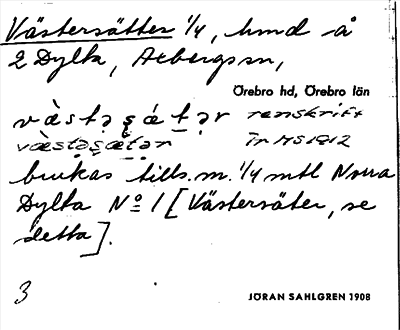 Västersätter 1/4, hmd å
2 Dylta, Axbergs sn,
Örebro hd, Örebro län
västə ʂä́tər renskrift
västəʂä́tər fr MS 1912
brukas tills.m. 1/4 mtl Norra
Dylta No 1 [Västersäter, se
detta].
3
JÖRAN SAHLGREN 1908